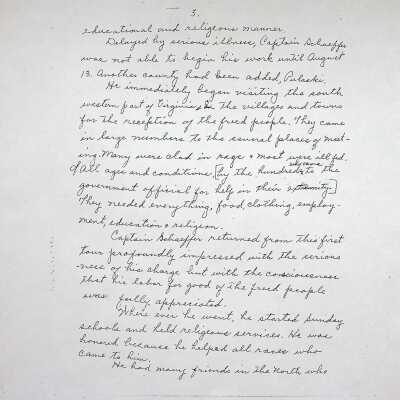 3.
educational and religeous manner.
Delayed by serious illness, Captain Schaeffer
was not able to begin his work until August
13. Another county had been added, Pulaski.
He immediately began visiting the south
western part of Virginia, in the villages and towns
for the reception of the freed people. They came
in large numbers to the several places of meet-
ing. Many were clad in rags & most were ill fed,
of all ages and conditions, [by the hundreds to the
government official for help in their
They needed everything, food, clothing, employ-
ment, education & religion.
Captain Schaeffer returned from this first
tour profoundly impressed with the serious
ness of his charge but with the consciousness
that his labor for good of the freed people
was fully appreciated.
Where ever he went, he started Sunday
schools and held religeous services. He was
honored because he helped all races who
came to him.
He had many friends in the North who